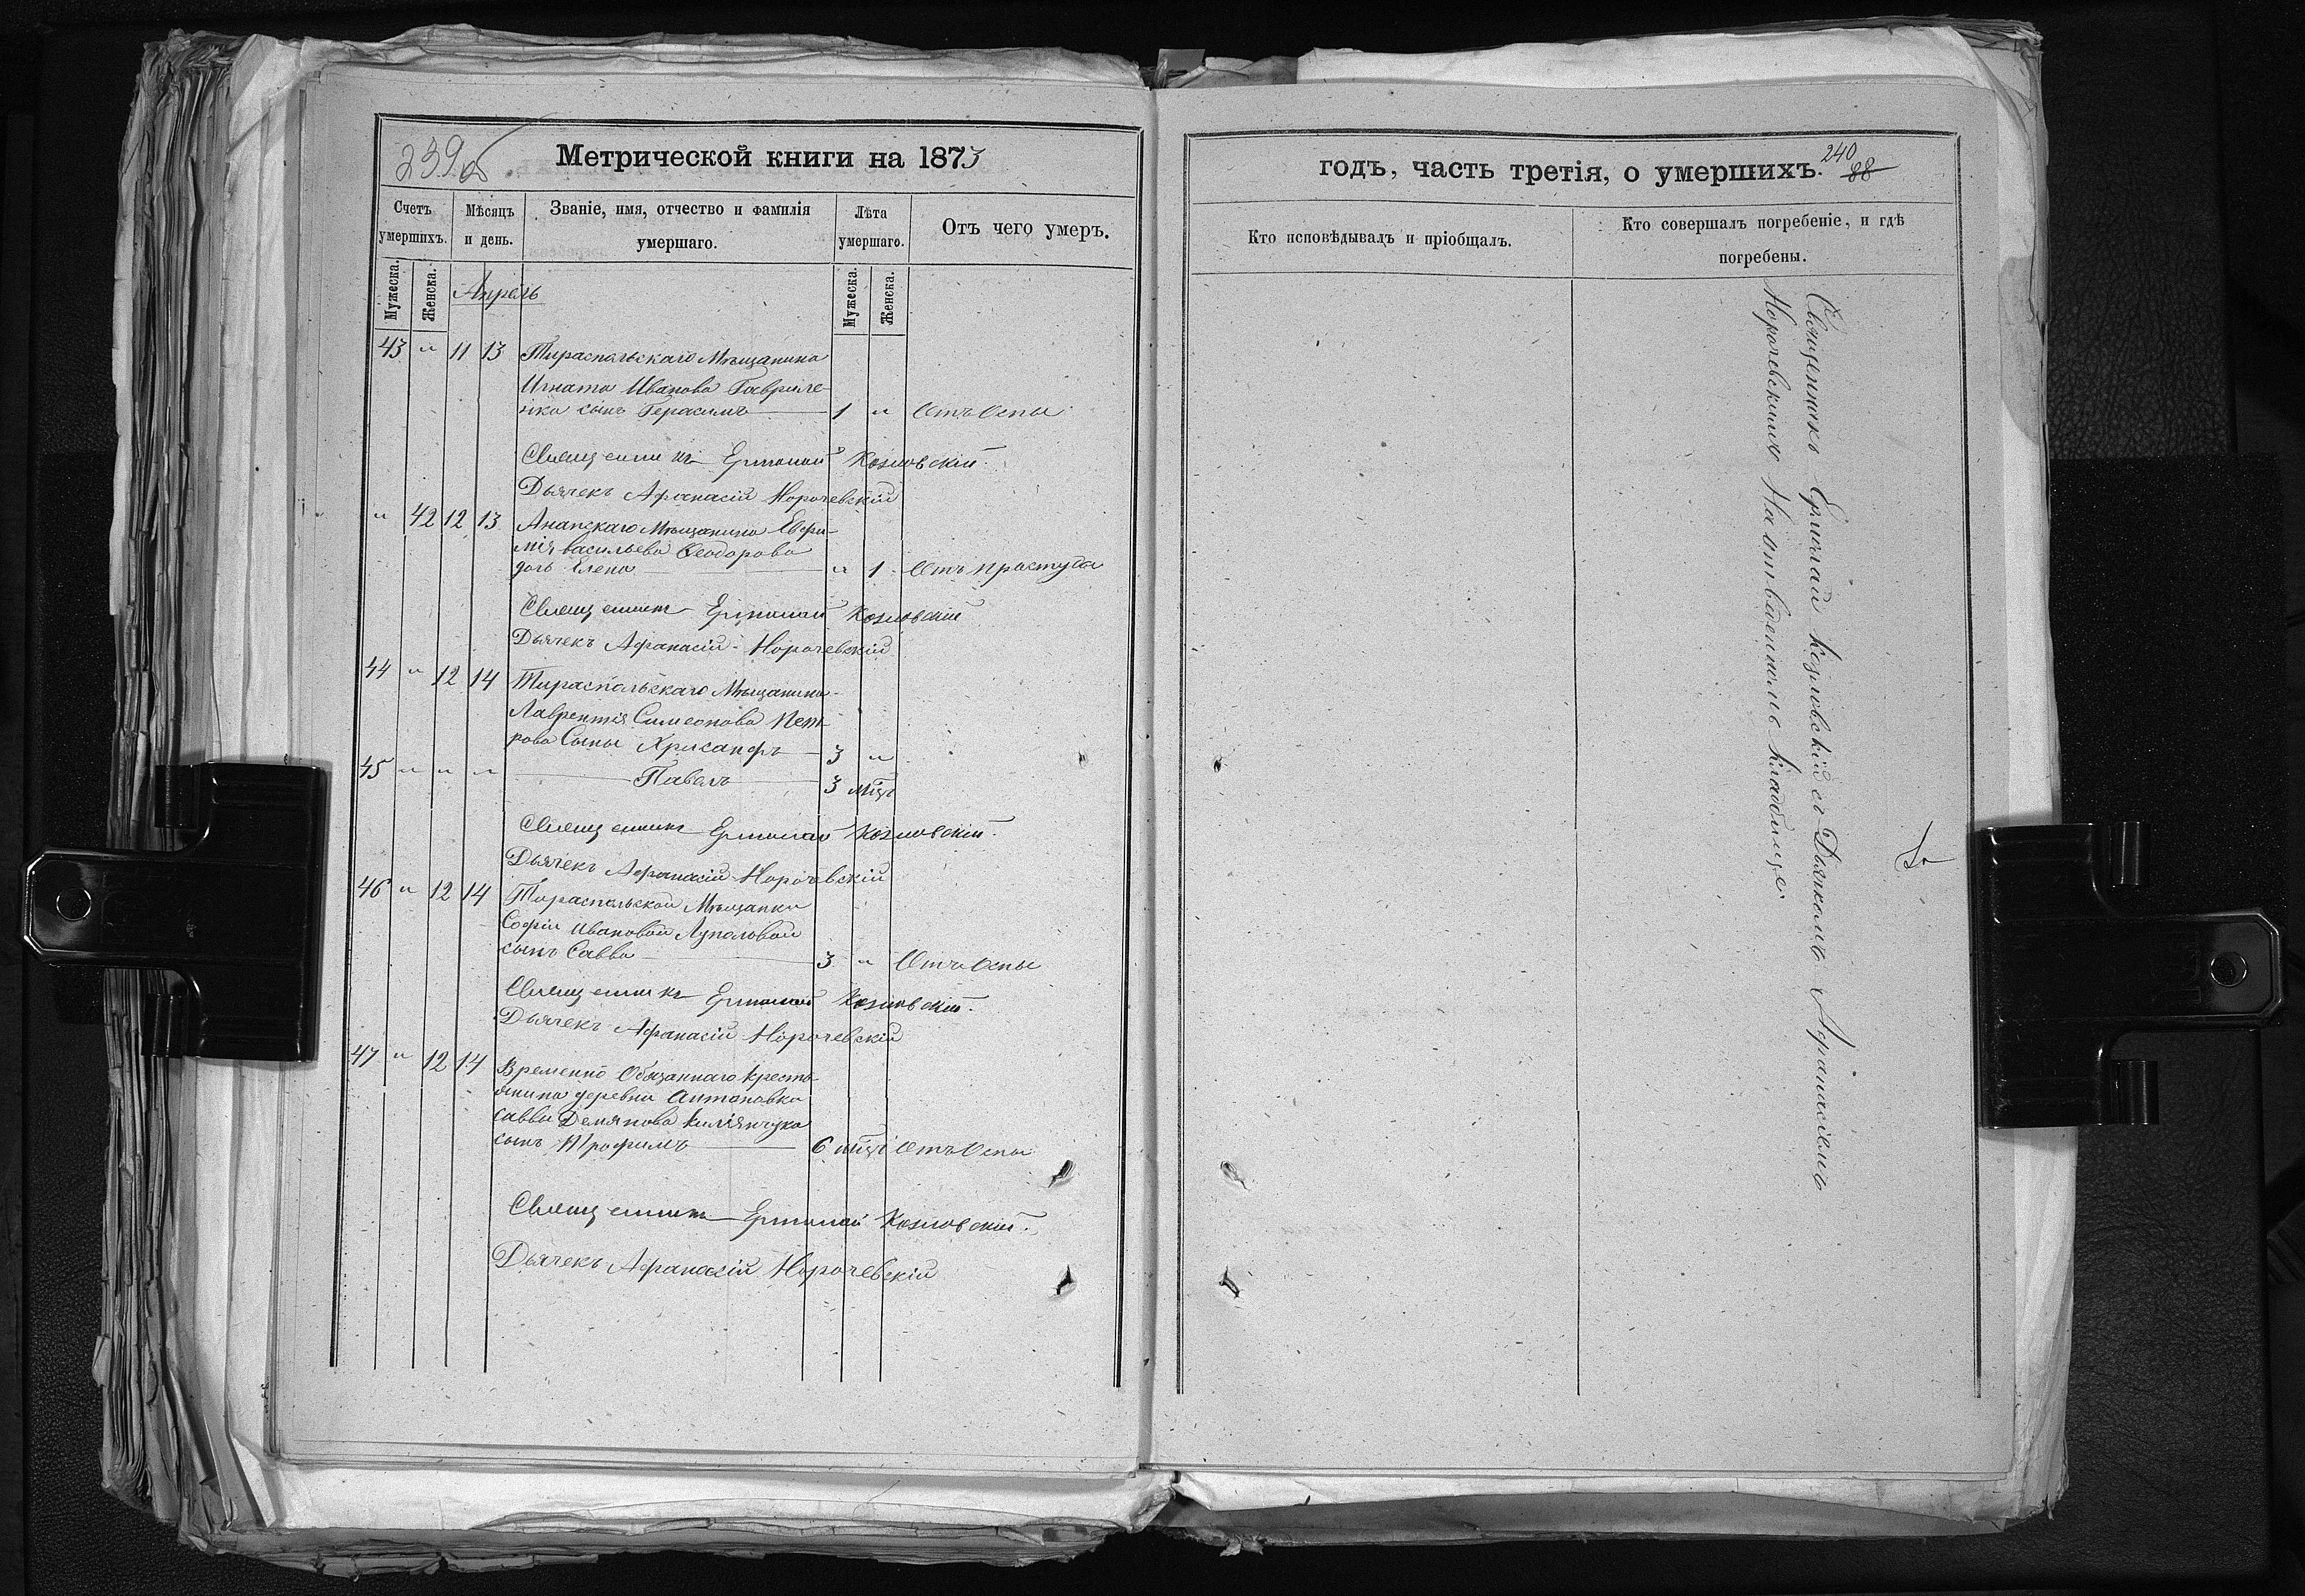 239 об.
Метрической книги на 1873
Счетъ умершихъ.
Мѣсяцъ и день.
Званіе, имя, отчество и фамилія умершаго.
Лѣта умершаго.
Отъ чего умеръ.
Мужеска.
Женска.
Мужеска.
Женска.
Апрель
43 " 11 13 Тираспольскаго Мѣщанина
Игната Иванова Гавриле-
нка сынъ Герасимъ 1 " Отъ Оспы
Священникъ Ермолай Козловскій.
Дьячекъ Афанасій Норочевскій
" 42 12 13 Анапскаго Мѣщанина Евфи-
мія васильева Ѳеодорова
дочь Елена " 1 Отъ простуды
Священникъ Ермолай Козловскій
Дьячекъ Афанасій Норочевскій
44 " 12 14 Тираспольскаго Мѣщанина
Лаврентія Симеонова Пет-
рова Сыны Хрисанфъ 3 "
45 " " " Павелъ 3 мѣц
Священникъ Ермолай Козловскій.
Дьячекъ Афанасій Норочевскій
46 " 12 14 Тираспольской Мѣщанки
Софіи Ивановой Луполовой
сынъ Савва 3 " Отъ Оспы
Священникъ Ермолай Козловскій.
Дьячекъ Афанасій Норочевскій
47 " 12 14 Временно Обязаннаго кресть-
янина деревни Антоновки
саввы Демянова
сынъ Трофимъ 6 мѣц Отъ Оспы
Священникъ Ермолай Козловскій.
Дьячекъ Афанасій Норочевскій
годъ, часть третія, о умершихъ.
240
88
Кто исповѣдывалъ и пріобщалъ.
Кто совершалъ погребеніе, и гдѣ погребены.
Священникъ Ермолай Козловскій съ Дьячкомъ Афанасіемъ
Норочевскимъ На отведенномъ кладбище